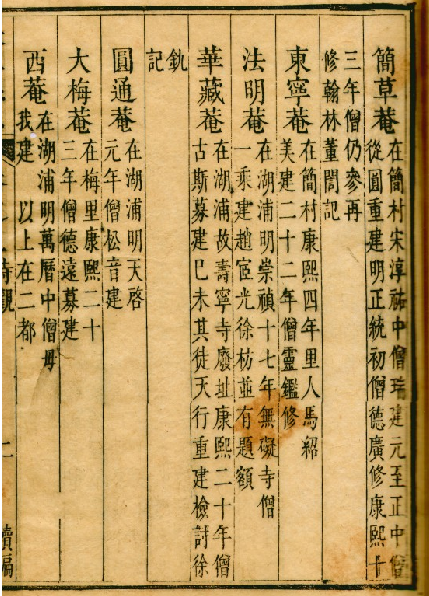 簡草菴在簡村宋淳祐中僧瑞建元至正中僧
從圓重建明正統初僧德廣修康熙十
三年僧仍參再
修翰林董誾記
東寧菴在簡村康熙四年里人馬紹
美建二十二年僧靈鑑修
法明菴在湖浦明崇禎十七年無礙寺僧
一乘建趙宧光徐枋並有題額
華藏菴在湖浦故壽寧寺廢址康熙二十年僧
古斯募建巳未其徒天行重建檢討徐
釚
記
圓通菴在湖浦明天啓
元年僧松音建
大梅菴在梅里康熙二十
三年僧德遠募建
西菴在湖浦明萬曆中僧毋
我建 以上在二都
寺觀
二
續編